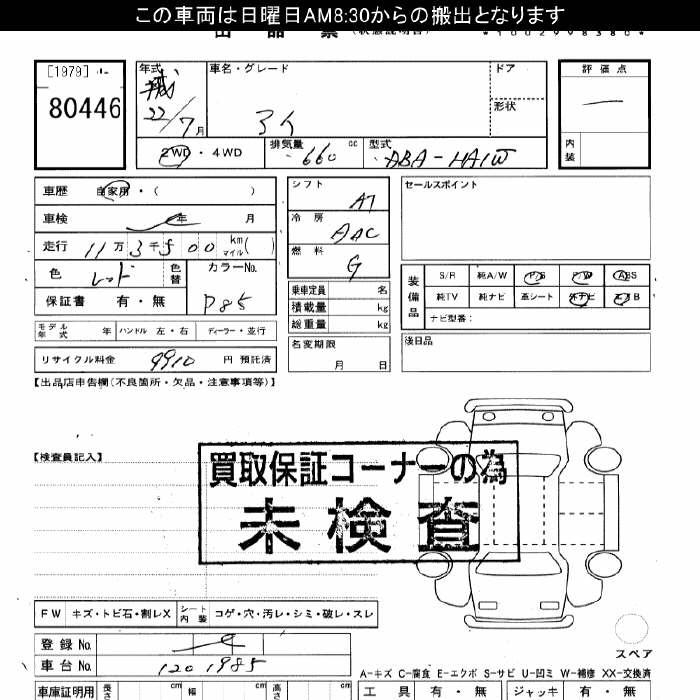 この車両は日曜日AM8:30からの搬出となります
出品票(状態説明書)
*1002998380*
[1979]
80446
年式 平成 22/7月
車名・グレード
アイ
ドア
形状
評価点
内装
2WD・4WD
排気量 660 cc
型式 ABA-HA1W
車歴 自家用・( )
車検 年 月
走行 11万3千500 km マイル( )
色 レッド
色替
カラーNo. P85
保証書 有・無
シフト AT
冷房 AAC
燃料 G
乗車定員 名
積載量 kg
総重量 kg
名変期限 月 日
セールスポイント
装備品
S/R 純A/W P/S P/W ABS
純TV 純ナビ 革シート 外ナビ エアB
ナビ型番:
後日品
モデル年式 年 ハンドル 左・右 ディーラー・並行
リサイクル料金 9910 円 預託済
【出品店申告欄(不良箇所・欠品・注意事項等)】
【検査員記入】
買取保証コーナーの為
未検査
FW キズ・トビ石・割レX シート内装 コゲ・穴・汚レ・シミ・破レ・スレ
登録No.
車台No. 1201985
スペア
A-キズ C-腐食 E-エクボ S-サビ U-凹ミ W-補修 XX-交換済
車庫証明用 長さ cm 幅 cm 高さ cm
工具 有・無 ジャッキ 有・無